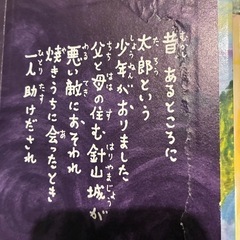 昔 あるところに
太郎という
少年がおりました
父と母の住む針山城が
悪い敵におそわれ
焼きうちに会ったとき
一人助けだされ